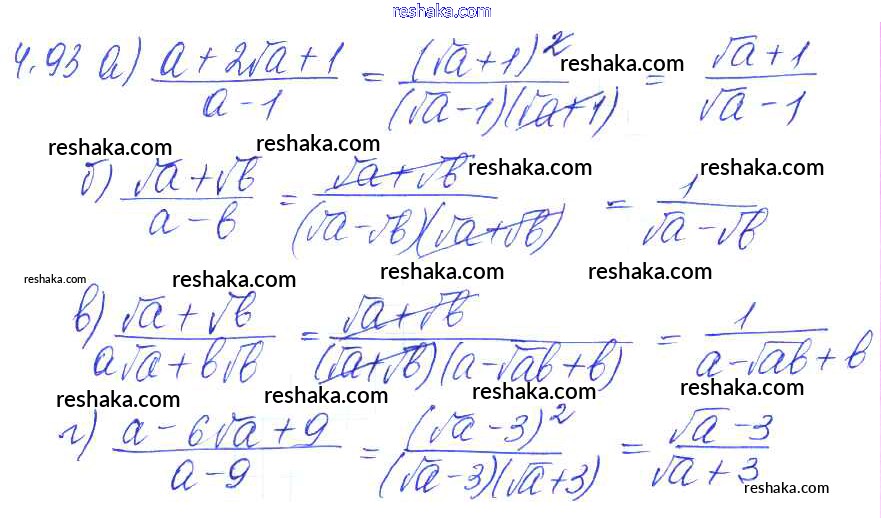 reshaka.com
4.93 а) (a + 2√a + 1)/(a - 1) = (√a + 1)²/((√a - 1)(√a + 1)) = (√a + 1)/(√a - 1)
reshaka.com
reshaka.com reshaka.com reshaka.com reshaka.com
б) (√a + √b)/(a - b) = (√a + √b)/((√a - √b)(√a + √b)) = 1/(√a - √b)
reshaka.com reshaka.com reshaka.com reshaka.com
в) (√a + √b)/(a√a + b√b) = (√a + √b)/((√a + √b)(a - √ab + b)) = 1/(a - √ab + b)
reshaka.com reshaka.com reshaka.com reshaka.com
г) (a - 6√a + 9)/(a - 9) = (√a - 3)²/((√a - 3)(√a + 3)) = (√a - 3)/(√a + 3)
reshaka.com